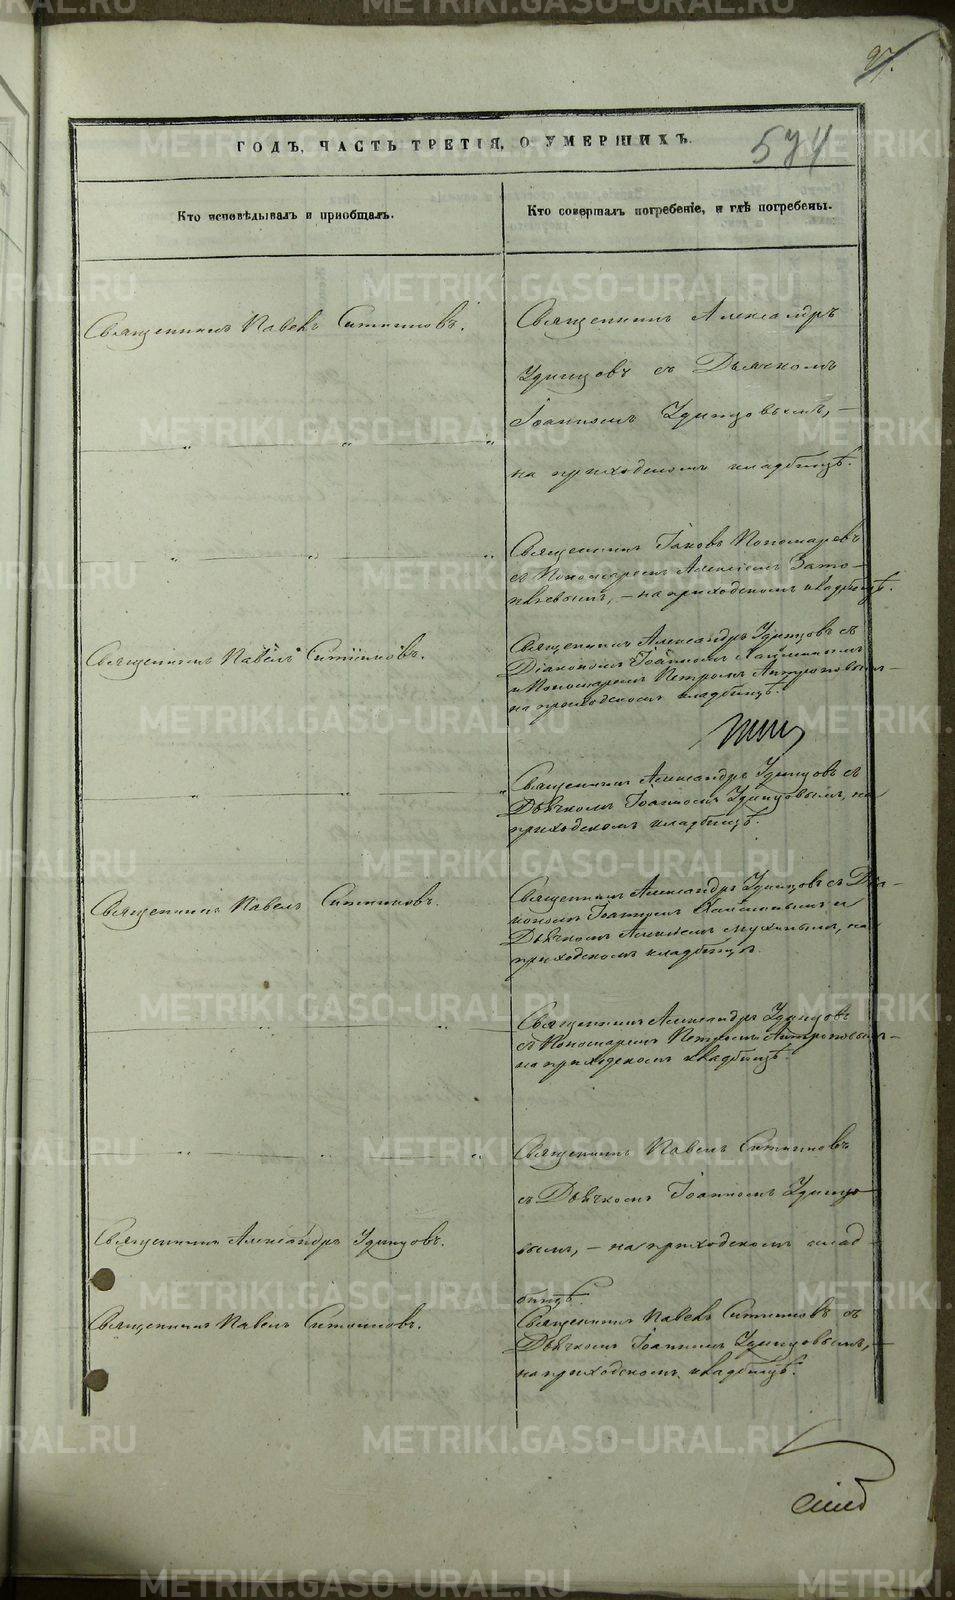 97.
574
ГОДЪ, ЧАСТЬ ТРЕТІЯ, О УМЕРШИХЪ.
Кто исповѣдывалъ и приобщалъ.
Кто совершалъ погребеніе, и гдѣ погребены.
Священникъ Павелъ Ситниковъ.
Священникъ Александръ
Удинцовъ съ Дьячкомъ
Іоанномъ Удинцовымъ, —
на приходскомъ кладбищѣ.
„ „ „
Священникъ Іаковъ Пономаревъ
съ Пономаремъ Алексіемъ Зато-
пляевымъ, — на приходскомъ кладбищѣ.
„ „ „
Священникъ Павелъ Ситниковъ.
Священникъ Александръ Удинцовъ съ
Діакономъ Іоанномъ
и Пономаремъ Петромъ Антроповымъ —
на приходскомъ кладбищѣ.
Священникъ Александръ Удинцовъ съ
Дьячкомъ Іоанномъ Удинцовымъ, на
приходскомъ кладбищѣ.
„ „ „
Священникъ Павелъ Ситниковъ.
Священникъ Александръ Удинцовъ съ Діа-
кономъ Іоанномъ и
Дьячкомъ Алексіемъ Мухинымъ, на
приходскомъ кладбищѣ.
Священникъ Александръ Удинцовъ
съ Пономаремъ Петромъ Антроповымъ —
на приходскомъ кладбищѣ.
„ „
Священникъ Павелъ Ситниковъ
съ Дьячкомъ Іоанномъ Удинцо-
вымъ, — на приходскомъ клад-
бищѣ.
„ „ „
Священникъ Александръ Удинцовъ.
Священникъ Павелъ Ситниковъ.
Священникъ Павелъ Ситниковъ съ
Дьячкомъ Іоанномъ Удинцовымъ, —
на приходскомъ кладбищѣ.
METRIKI.GASO-URAL.RU